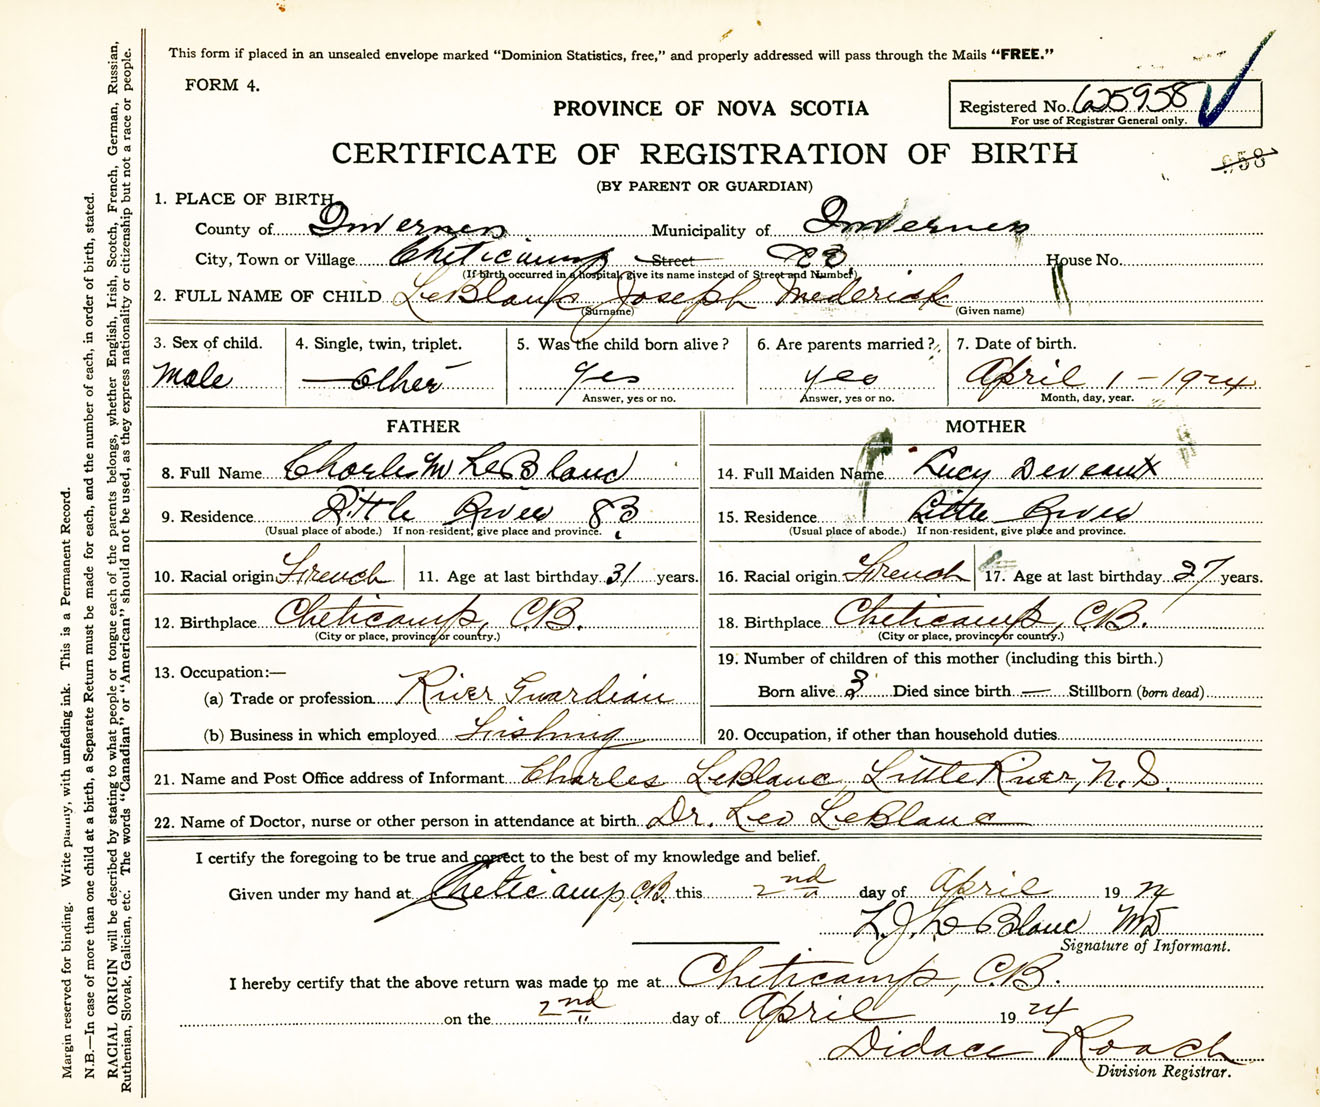 This form if placed in an unsealed envelope marked "Dominion Statistics, free," and properly addressed will pass through the Mails "FREE."
FORM 4.
Registered No. 625958
For use of Registrar General only.
PROVINCE OF NOVA SCOTIA
CERTIFICATE OF REGISTRATION OF BIRTH
958
(BY PARENT OR GUARDIAN)
1. PLACE OF BIRTH
County of Inverness Municipality of Inverness
City, Town or Village Cheticamp Street House No.
(If birth occurred in a hospital, give its name instead of Street and Number)
2. FULL NAME OF CHILD LeBlanc Joseph Mederick
(Surname) (Given name)
3. Sex of child. 4. Single, twin, triplet. 5. Was the child born alive? 6. Are parents married? 7. Date of birth.
Male other yes yes April 1-1924
Answer, yes or no. Answer, yes or no. Month, day, year.
FATHER MOTHER
8. Full Name Charles M LeBlanc 14. Full Maiden Name Lucy Deveaux
9. Residence Little River 83 15. Residence Little River
(Usual place of abode.) If non-resident, give place and province. (Usual place of abode.) If non-resident, give place and province.
10. Racial origin French 11. Age at last birthday 31 years. 16. Racial origin French 17. Age at last birthday 27 years.
12. Birthplace Cheticamp, C.B. 18. Birthplace Cheticamp, C.B.
(City or place, province or country.) (City or place, province or country.)
13. Occupation:— 19. Number of children of this mother (including this birth.)
(a) Trade or profession River Guardian Born alive 3 Died since birth — Stillborn (born dead)
(b) Business in which employed Fishing 20. Occupation, if other than household duties
21. Name and Post Office address of Informant Charles LeBlanc, Little River, N.S.
22. Name of Doctor, nurse or other person in attendance at birth Dr. Leo LeBlanc
I certify the foregoing to be true and correct to the best of my knowledge and belief.
Given under my hand at Cheticamp, C.B. this 2nd day of April 1924
L.J. LeBlanc MD
Signature of Informant.
I hereby certify that the above return was made to me at Cheticamp, C.B.
on the 2nd day of April 1924
Didace Roach
Division Registrar.
Margin reserved for binding. Write plainly, with unfading ink. This is a Permanent Record.
N.B.—In case of more than one child at a birth, a Separate Return must be made for each, and the number of each, in order of birth, stated.
RACIAL ORIGIN will be described by stating to what people or tongue each of the parents belongs, whether English, Irish, Scotch, French, German, Russian,
Ruthenian, Slovak, Galician, etc. The words "Canadian" or "American" should not be used, as they express nationality or citizenship but not a race or people.